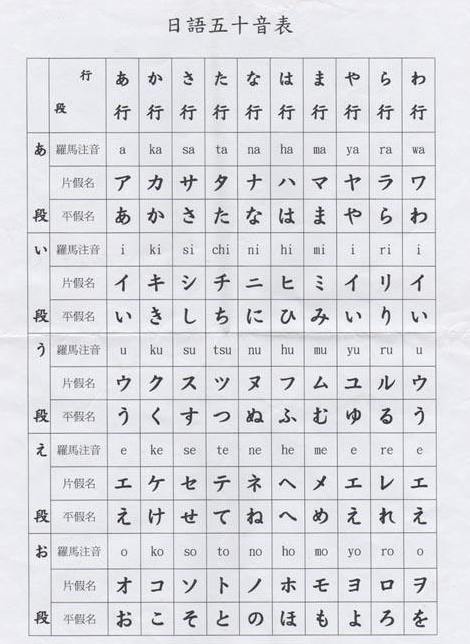 日語五十音表
行 あ か さ た な は ま や ら わ
段 行 行 行 行 行 行 行 行 行 行
あ 羅馬注音 a ka sa ta na ha ma ya ra wa
片假名 ア カ サ タ ナ ハ マ ヤ ラ ワ
段 平假名 あ か さ た な は ま や ら わ
い 羅馬注音 i ki si chi ni hi mi i ri i
片假名 イ キ シ チ ニ ヒ ミ イ リ イ
段 平假名 い き し ち に ひ み い り い
う 羅馬注音 u ku su tsu nu hu mu yu ru u
片假名 ウ ク ス ツ ヌ フ ム ユ ル ウ
段 平假名 う く す つ ぬ ふ む ゆ る う
え 羅馬注音 e ke se te ne he me e re e
片假名 エ ケ セ テ ネ ヘ メ エ レ エ
段 平假名 え け せ て ね へ め え れ え
お 羅馬注音 o ko so to no ho mo yo ro o
片假名 オ コ ソ ト ノ ホ モ ヨ ロ ヲ
段 平假名 お こ そ と の ほ も よ ろ を